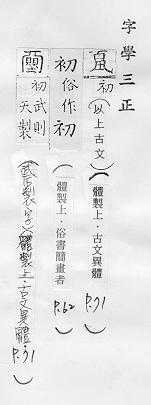 字學三正
初(以上古文)(體製上·古文異體 P.91)
初俗作初(體製上·俗書簡畫者 P.62)
初武則天製(武后製字)(體製上·古文異體 P.91)